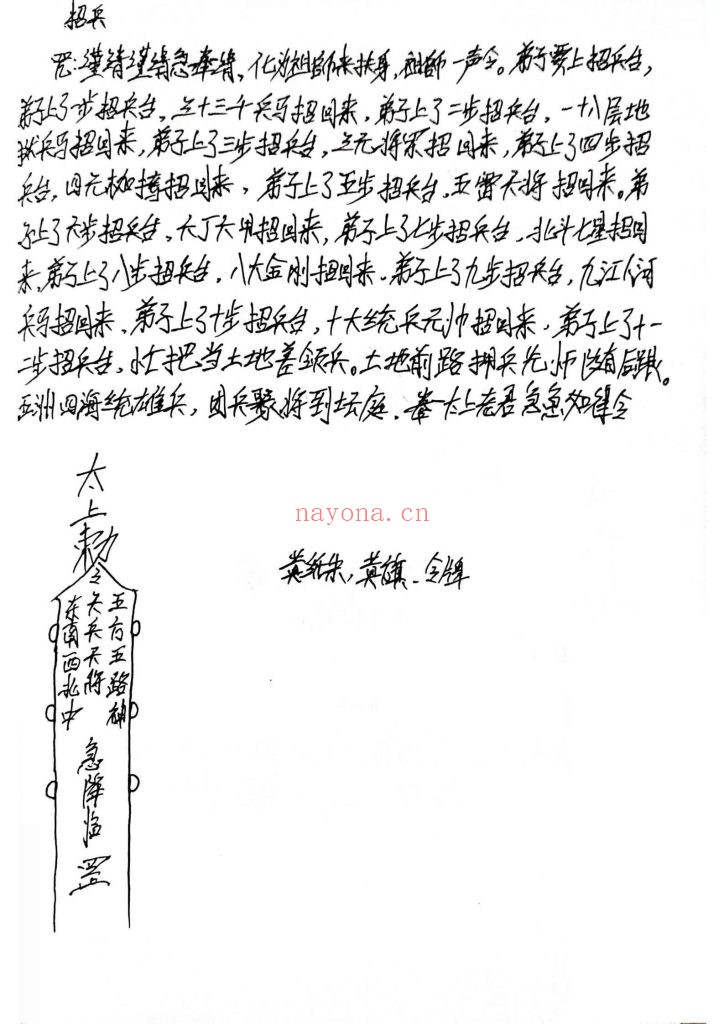 招兵
咒:谨请谨请急奉请、化沙祖师来扶身,祖师一声令。弟子要上招兵台,
弟子上了一步招兵台,三十三千兵马招回来,弟子上了二步招兵台,一十八层地
狱兵马招回来,弟子上了三步招兵台,三元将军招回来,弟子上了四步招
兵台,四元枷栲招回来,弟子上了五步招兵台,五雷天将招回来。弟
子上了六步招兵台,六丁六甲招回来,弟子上了七步招兵台,北斗七星招回
来,弟子上了八步招兵台,八大金刚招回来,弟子上了九步招兵台,九江八河
兵马招回来、弟子上了十步招兵台,十大统兵元帅招回来,弟子上了十一
二步招兵台,把当土地差领兵。土地前路拥兵先后跟。
五洲四海统雄兵,团兵聚将到坛庭、奉太上老君急急如律令
太上勅令
五方五路神
天兵天将
东南西北中
急降临
罡
黄纸朱,黄旗、令牌
nayona.cn